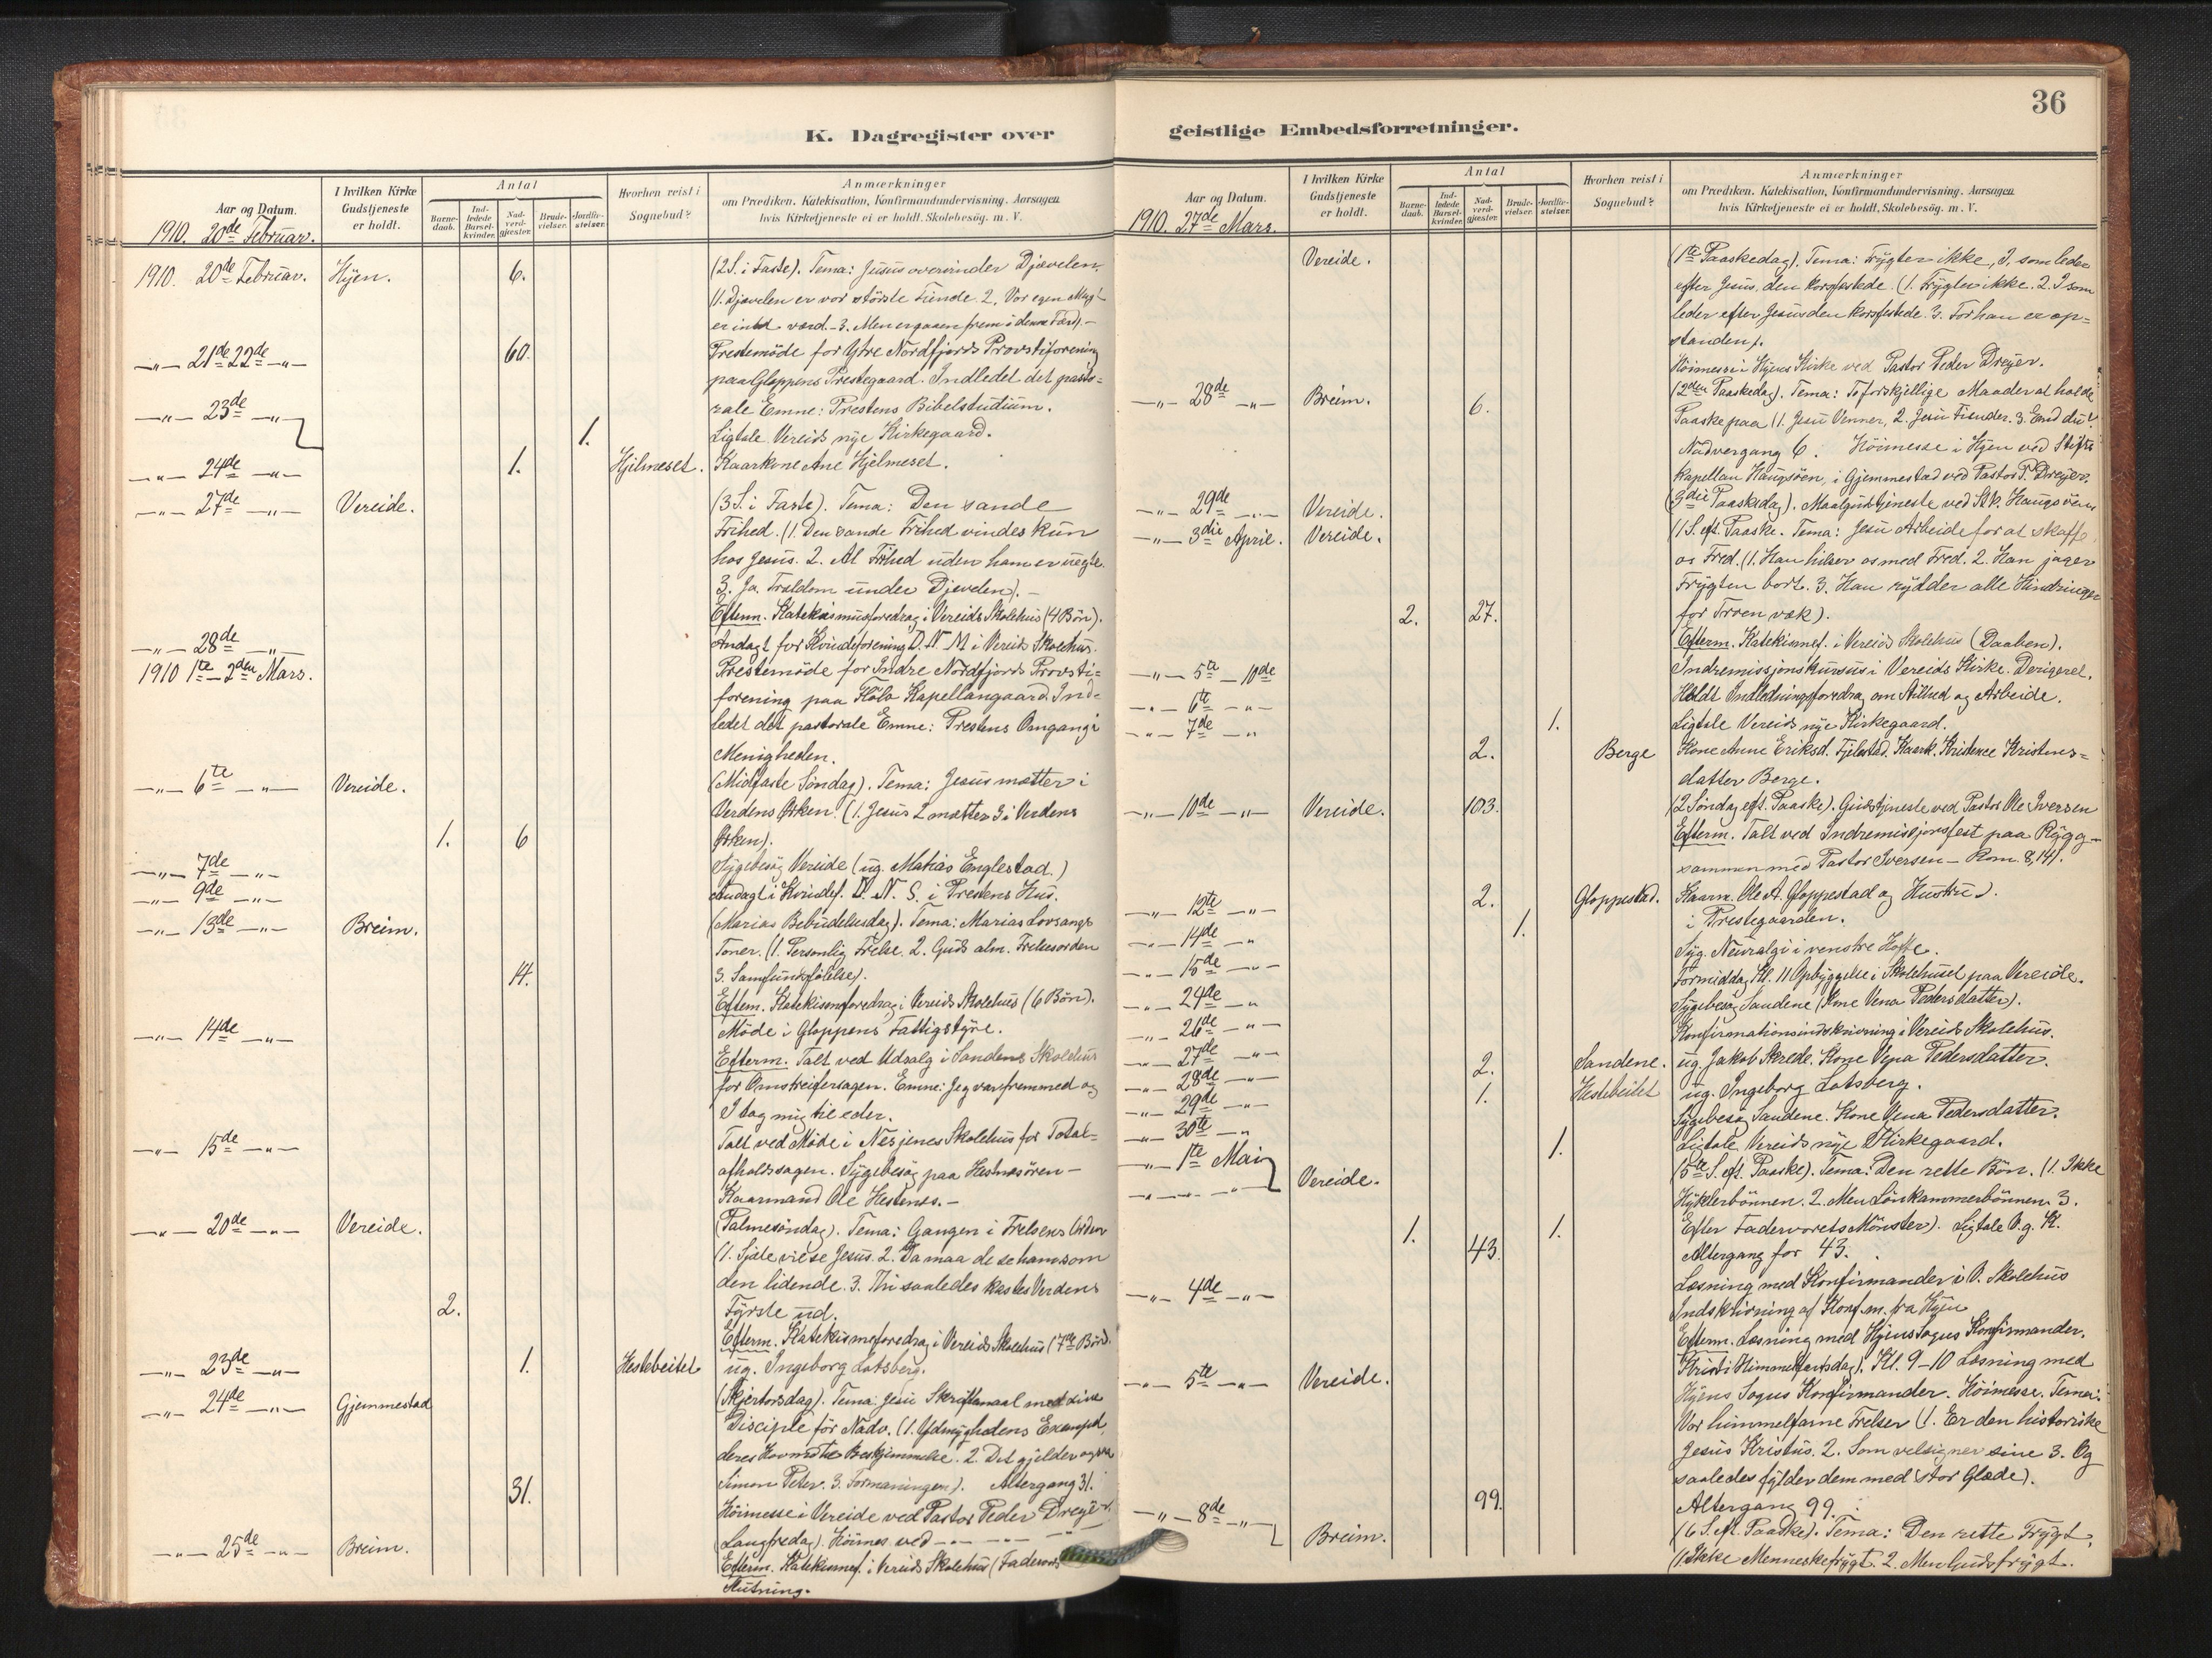 K. Dagregister over
Aar og Datum.
1910. 20de Februar.
I hvilken Kirke Gudstjeneste er holdt.
Antal
Barne-daab.
Ind-ledede Barsel-kvinder.
Nad-verd-gjæster.
Brude-vielser.
Jordfæ-stelser.
Hvorhen reist i Sognebud?
Anmærkninger
om Prædiken, Katekisation, Konfirmandundervisning. Aarsagen
hvis Kirketjeneste ei er holdt. Skolebesög. m. V.
1910. 20de Februar. Hyen. 6. (2 S. i Faste). Tema: Jesus overvinder Djævelen.
(1. Djævelen er vor største Fiende. 2. Vor egen Magt
er intet værd. - 3. Men ergaaen frem i denne Færd). -
-"- 21de 22de -"- 60. Prestemøde for Ytre Nordfjords Provstiforening
paa Gloppens Prestegaard. Indledet det pasto-
rale Emne: Prestens Bibelstudium.
-"- 23de -"- 1. Ligtale Vereids nye Kirkegaard.
-"- 24de -"- 1. Hjelmeset. Kaarkone Ane Hjelmeset.
-"- 27de -"- Vereide. (3 S. i Faste). Tema: Den sande
Frihed. (1. Den sande Frihed vindes kun
hos Jesus. 2. Al Frihed uden ham er uegte.
3. Ja. Trældom under Djævelen). -
Efterm. Katekismusforedrag i Vereids Skolehus (4 Bøn).
-"- 28de -"- Andagt for Kvindeforening D. N. M i Vereids Skolehus.
1910 1ste - 2den Mars. Prestemøde for Indre Nordfjords Provsti-
forening paa Flölo Kapellangaard. Ind-
ledet det pastorale Emne: Prestens Omgang i
Menigheden.
-"- 6te -"- Vereide. (Midfaste Søndag). Tema: Jesus mætter i
Verdens Ørken. (1. Jesus 2 mætter 3 i Verdens
1. 6 Ørken).
-"- 7de -"- Sygebesøg Vereide (ug. Matias Englestad.)
-"- 9de -"- Andagt i Kvindef. D. N. S. i Prestens Hus.
-"- 13de -"- Breim. (Marias Bebudelsesdag). Tema: Marias Lovsangs
Toner. (1. Personlig Frelse. 2. Guds alm. Frelsesorden
14. 3. Samfundsfølelse).
Efterm. Katekismeforedrag i Vereids Skolehus (6 Bøn).
-"- 14de -"- Møde i Gloppens Fattigstyre.
Efterm. Talt ved Udsalg i Sandene Skolehus
for Omstreifersagen. Emne: Jeg var fremmed og
I tog mig til eder.
-"- 15de -"- Talt ved Møde i Nesjenes Skolehus for Total-
afholdssagen. Sygebesøg paa Hestnesøren -
Kaarmand Ole Hestnes. -
-"- 20de -"- Vereide. (Palmesøndag). Tema: Gangen i Frelsens Orden
(1. Sjæle vil se Jesus. 2. Da maa de se ham som
den lidende. 3. Thi saaledes kastes Verdens
2. Fyrste ud.
Efterm. Katekismeforedrag i Vereids Skolehus (7de Bøn).
-"- 23de -"- 1. Hestebeitet ug. Ingeborg Lotsberg.
-"- 24de -"- Gjemmestad (Skjertorsdag). Tema: Jesu Skriftemaal med sine
Disciple før Nadv. (1. Ydmyghedens Exempel,
deres Hovmods Beskjemmelse. 2. Det gjelder ogsaa
31. Simon Peter. 3. Formaningen). Altergang 31.
Høimesse i Vereide ved Pastor Peder Dreyer.
-"- 25de -"- Breim. (Langfredag). Höimes. ved -"- -"-
Efterm. Katekismef. i Vereids Skolehus (Fadervors
Slutning.
36
geistlige Embedsforretninger.
Aar og Datum.
1910. 27de Mars.
I hvilken Kirke Gudstjeneste er holdt.
Antal
Barne-daab.
Ind-ledede Barsel-kvinder.
Nad-verd-gjæster.
Brude-vielser.
Jordfæ-stelser.
Hvorhen reist i Sognebud?
Anmærkninger
om Prædiken. Katekisation, Konfirmandundervisning. Aarsagen
hvis Kirketjeneste ei er holdt, Skolebesög. m. V.
Vereide. (1ste Paaskedag). Tema: Frygter ikke, I, som leder
efter Jesus, den korsfæstede. (1. Frygter ikke. 2. I som
leder efter Jesus den korsfestede. 3. For han er op-
standen).
Høimesse i Hyens Kirke ved Pastor Peder Dreyer.
-"- 28de -"- Breim. 6. (2den Paaskedag). Tema: To forskjellige Maader at holde
Paaske paa (1. Jesu Venner, 2. Jesu Fiender. 3. End du?
Nadvergang 6. Höimesse i Hyen ved Stifts
kapellan Haugsøen, i Gjemmestad ved Pastor P. Dreyer.
-"- 29de -"- Vereide. (3die Paaskedag). Maalgudstjeneste ved Stk. Haugsøen
-"- 3die April. Vereide. (1 S. eft. Paaske. Tema: Jesu Arbeide for at skaffe
os Fred. (1. Han hilser os med Fred. 2. Han jager
Frygten bort. 3. Han rydder alle Hindringer
2. 27. for Troen væk).
Efterm. Katekismef. i Vereids Skolehus (Daaben).
-"- 5te - 10de Indremissjonskursus i Vereids Kirke. Dirigeret.
-"- 6te -"- Holdt Indledningsforedrag om Stilhed og Arbeide.
-"- 7de -"- 1. Ligtale Vereids nye Kirkegaard.
2. Berge Kone Anne Eriksd. Fjelestad. Kaark. Kristense Kristens-
datter Berge.
-"- 10de -"- Vereide. 103. (2 Søndag eft. Paaske). Gudstjeneste ved Pastor Ole Iversen
Efterm. Talt ved Indremissjonsfest paa Rygg -
sammen med Pastor Iversen - Rom. 8,14).
-"- 12te -"- 2. Gloppestad. Kaarm. Ole A. Gloppestad og Hustru).
-"- 14de -"- 1. i Prestegaarden.
-"- 15de -"- Syg. Neuralgi i venstre Hofte.
-"- 24de -"- Formiddag Kl. 11 Opbyggelse i Skolehuset paa Vereide.
-"- 26de -"- Sygebesøg Sandene (Kone Vena Pedersdatter).
-"- 27de -"- Konfirmationsindskrivning i Vereids Skolehus.
-"- 28de -"- 2. Sandene. ug. Jakob Skrede. Kone Vena Pedersdatter.
-"- 29de -"- 1. Hestebeitet ug. Ingeborg Lotsberg.
-"- 30te -"- Sygebesøg Sandene. Kone Vena Pedersdatter.
-"- 1ste Mai 1. Ligtale Vereids nye Kirkegaard.
-"- -"- Vereide. (5te S. eft. Paaske). Tema: Den rette Bøn. (1. Ikke
Hyklerbønnen. 2. Men Lønkammerbønnen 3.
1. 1. Efter Fadervorets Mønster). Ligtale V. g. K.
43. Altergang for 43.
Læsning med Konfirmander i V. Skolehus
-"- 4de -"- Indskrivning af Konf.m. fra Hyen
Efterm. Læsning med Hyens Sogns Konfirmander.
-"- 5te -"- Vereide. Kristi Himmelfartsdag). Kl. 9-10 Læsning med
Hyens Sogns Konfirmander. Höimesse. Tema:
Vor himmelfarne Frelser (1. Er den historiske
Jesus Kristus. 2. Som velsigner sine 3. Og
saaledes fylder dem med stor Glæde).
99. Altergang 99.
-"- 8de -"- Breim. (6 S. eft. Paaske). Tema: Den rette Frygt.
(1. Ikke Menneskefrygt. 2. Men Gudsfrygt.